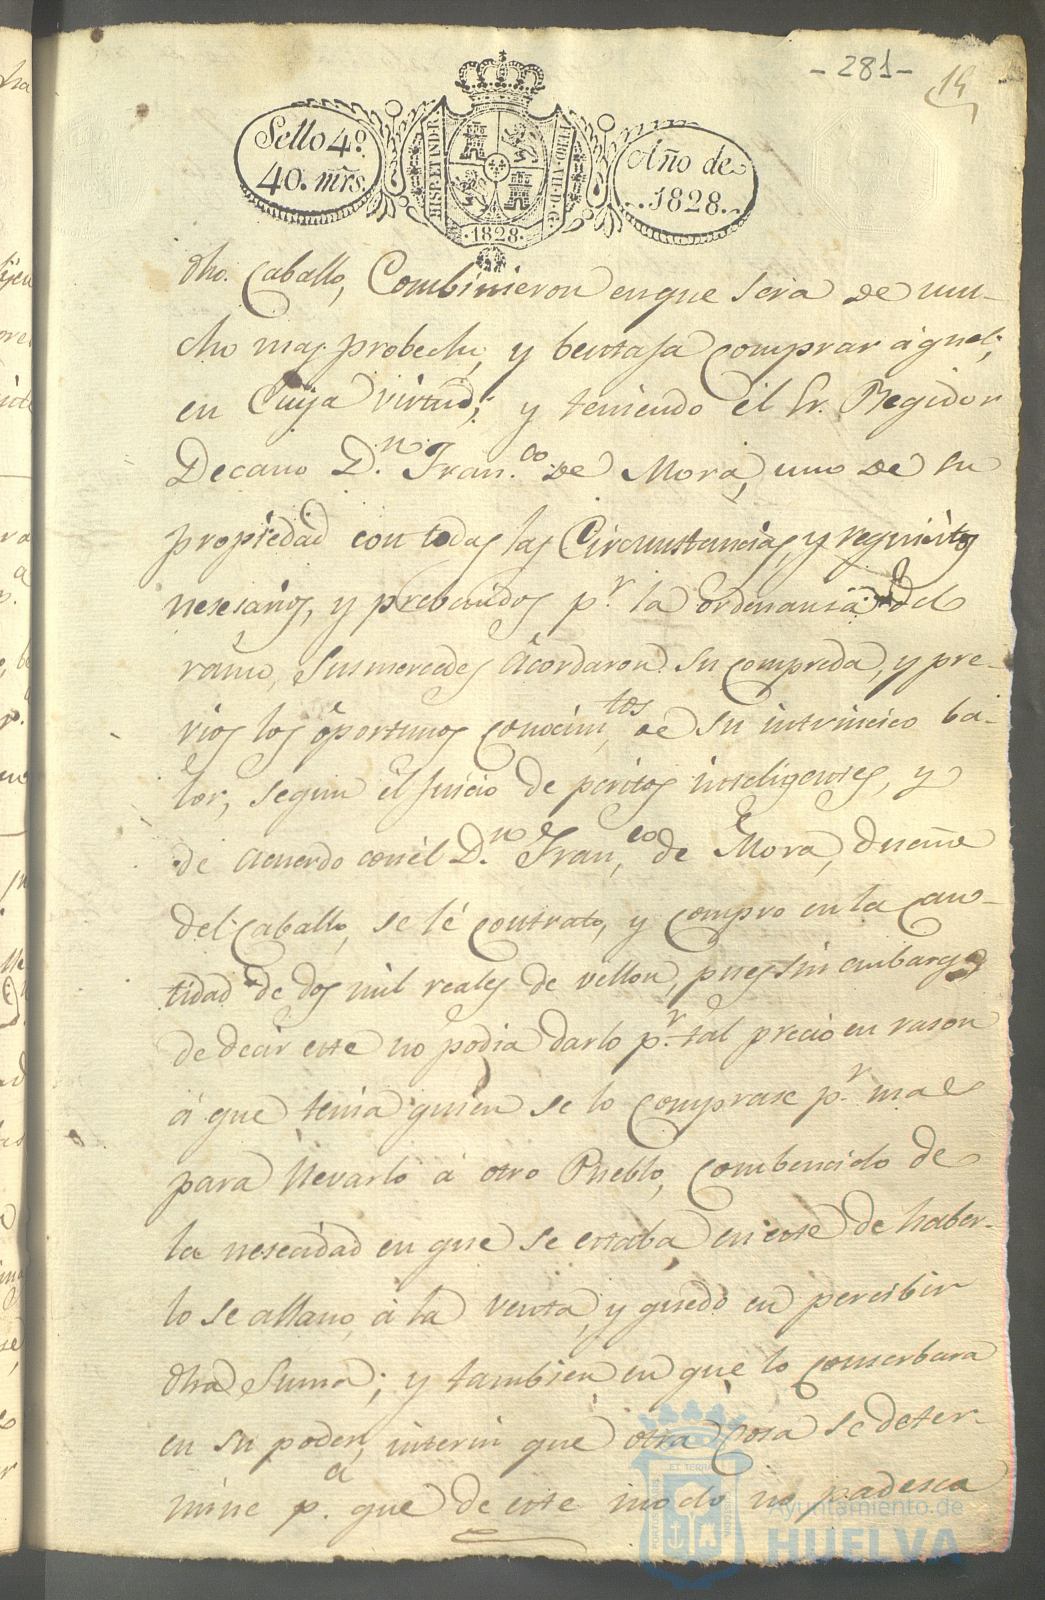 - 281 -
Sello 4º
40. mrs.
HISP. ET IND. R.
FERD. VII. D. G.
1828.
Año de
1828.
dho. Caballo, Combinieron en que sera de mu-
cho mas probecho, y bentaja comprar aquel;
en Cuija virtud; y teniendo el Sr. Regidor
Decano D.n Fran.co de Mora, uno de su
propiedad con todas las Circunstancias, y requisitos
nesesarios, y prebenidos p.r la ordenansa del
ramo, Susmercedes Acordaron su compreda, y pre-
vios los oportunos conocim.tos de su intrincico ba-
lor, segun el juicio de peritos inteligentes, y
de acuerdo con el D.n Fran.co de Mora, dueño
del Caballo, se le contrato, y compro en la can-
tidad de dos mil reales de vellon, pues sin embargo
de decir este no podia darlo p.r tal precio en rason
á que tenia quien se lo comprase p.r mas
para llevarlo á otro Pueblo, combencido de
la nesecidad en que se estaba en este de haber-
lo se allano, á la venta, y quedó en percibir
dha Suma; y tambien en que lo conserbara
en su poder, interin que otra cosa se deter-
mine p.a que de este modo no padesca
Ayuntamiento de
HUELVA